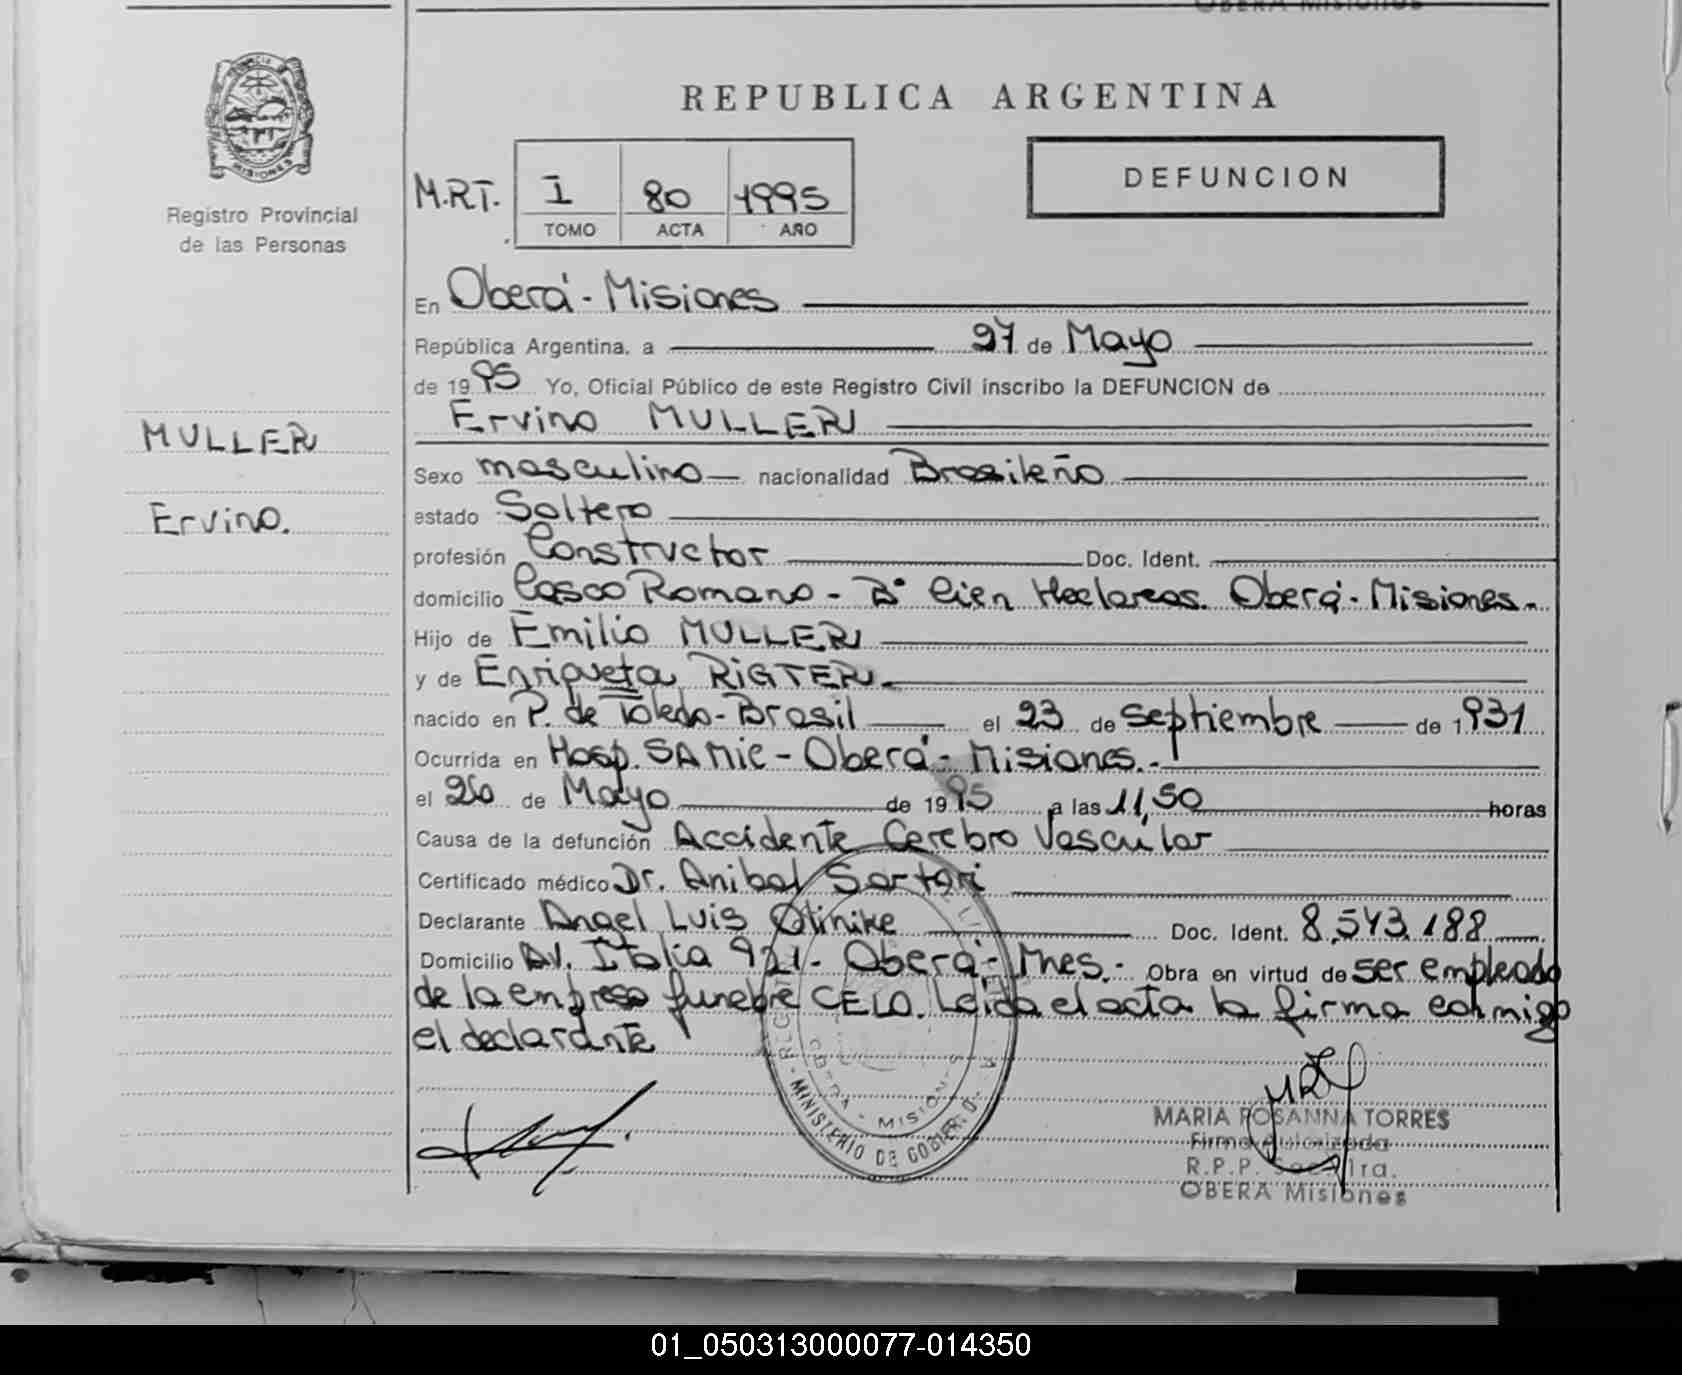 OBERA Misiones
PROVINCIA DE
MISIONES
Registro Provincial
de las Personas
REPUBLICA ARGENTINA
DEFUNCION
M.R.T. I 80 1995
TOMO ACTA AÑO
En Oberá - Misiones
República Argentina, a 27 de Mayo
de 1995 Yo, Oficial Público de este Registro Civil inscribo la DEFUNCION de
Ervino MULLER
MULLER
Ervino.
Sexo masculino nacionalidad Brasileño
estado Soltero
profesión Constructor Doc. Ident.
domicilio Casco Romano - Bº Cien Hectareas. Oberá - Misiones.
Hijo de Emilio MULLER
y de Enriqueta RIGTER.
nacido en P. de Toledo - Brasil el 23 de septiembre de 1931
Ocurrida en Hosp. SAMIC - Oberá - Misiones.-
el 26 de Mayo de 1995 a las 11,50 horas
Causa de la defunción Accidente Cerebro Vascular
Certificado médico Dr. Anibal Sartori
Declarante Angel Luis Olinike Doc. Ident. 8.543.188
Domicilio Av. Italia 921 - Oberá - Mnes. - Obra en virtud de ser empleado
de la empresa funebre CELO. Leida el acta la firma conmigo
el declarante
MINISTERIO DE GOBIERNO
OBERA - MISIONES
MARIA ROSANNA TORRES
Firma Autorizada
R.P.P.
OBERA Misiones
01_050313000077-014350